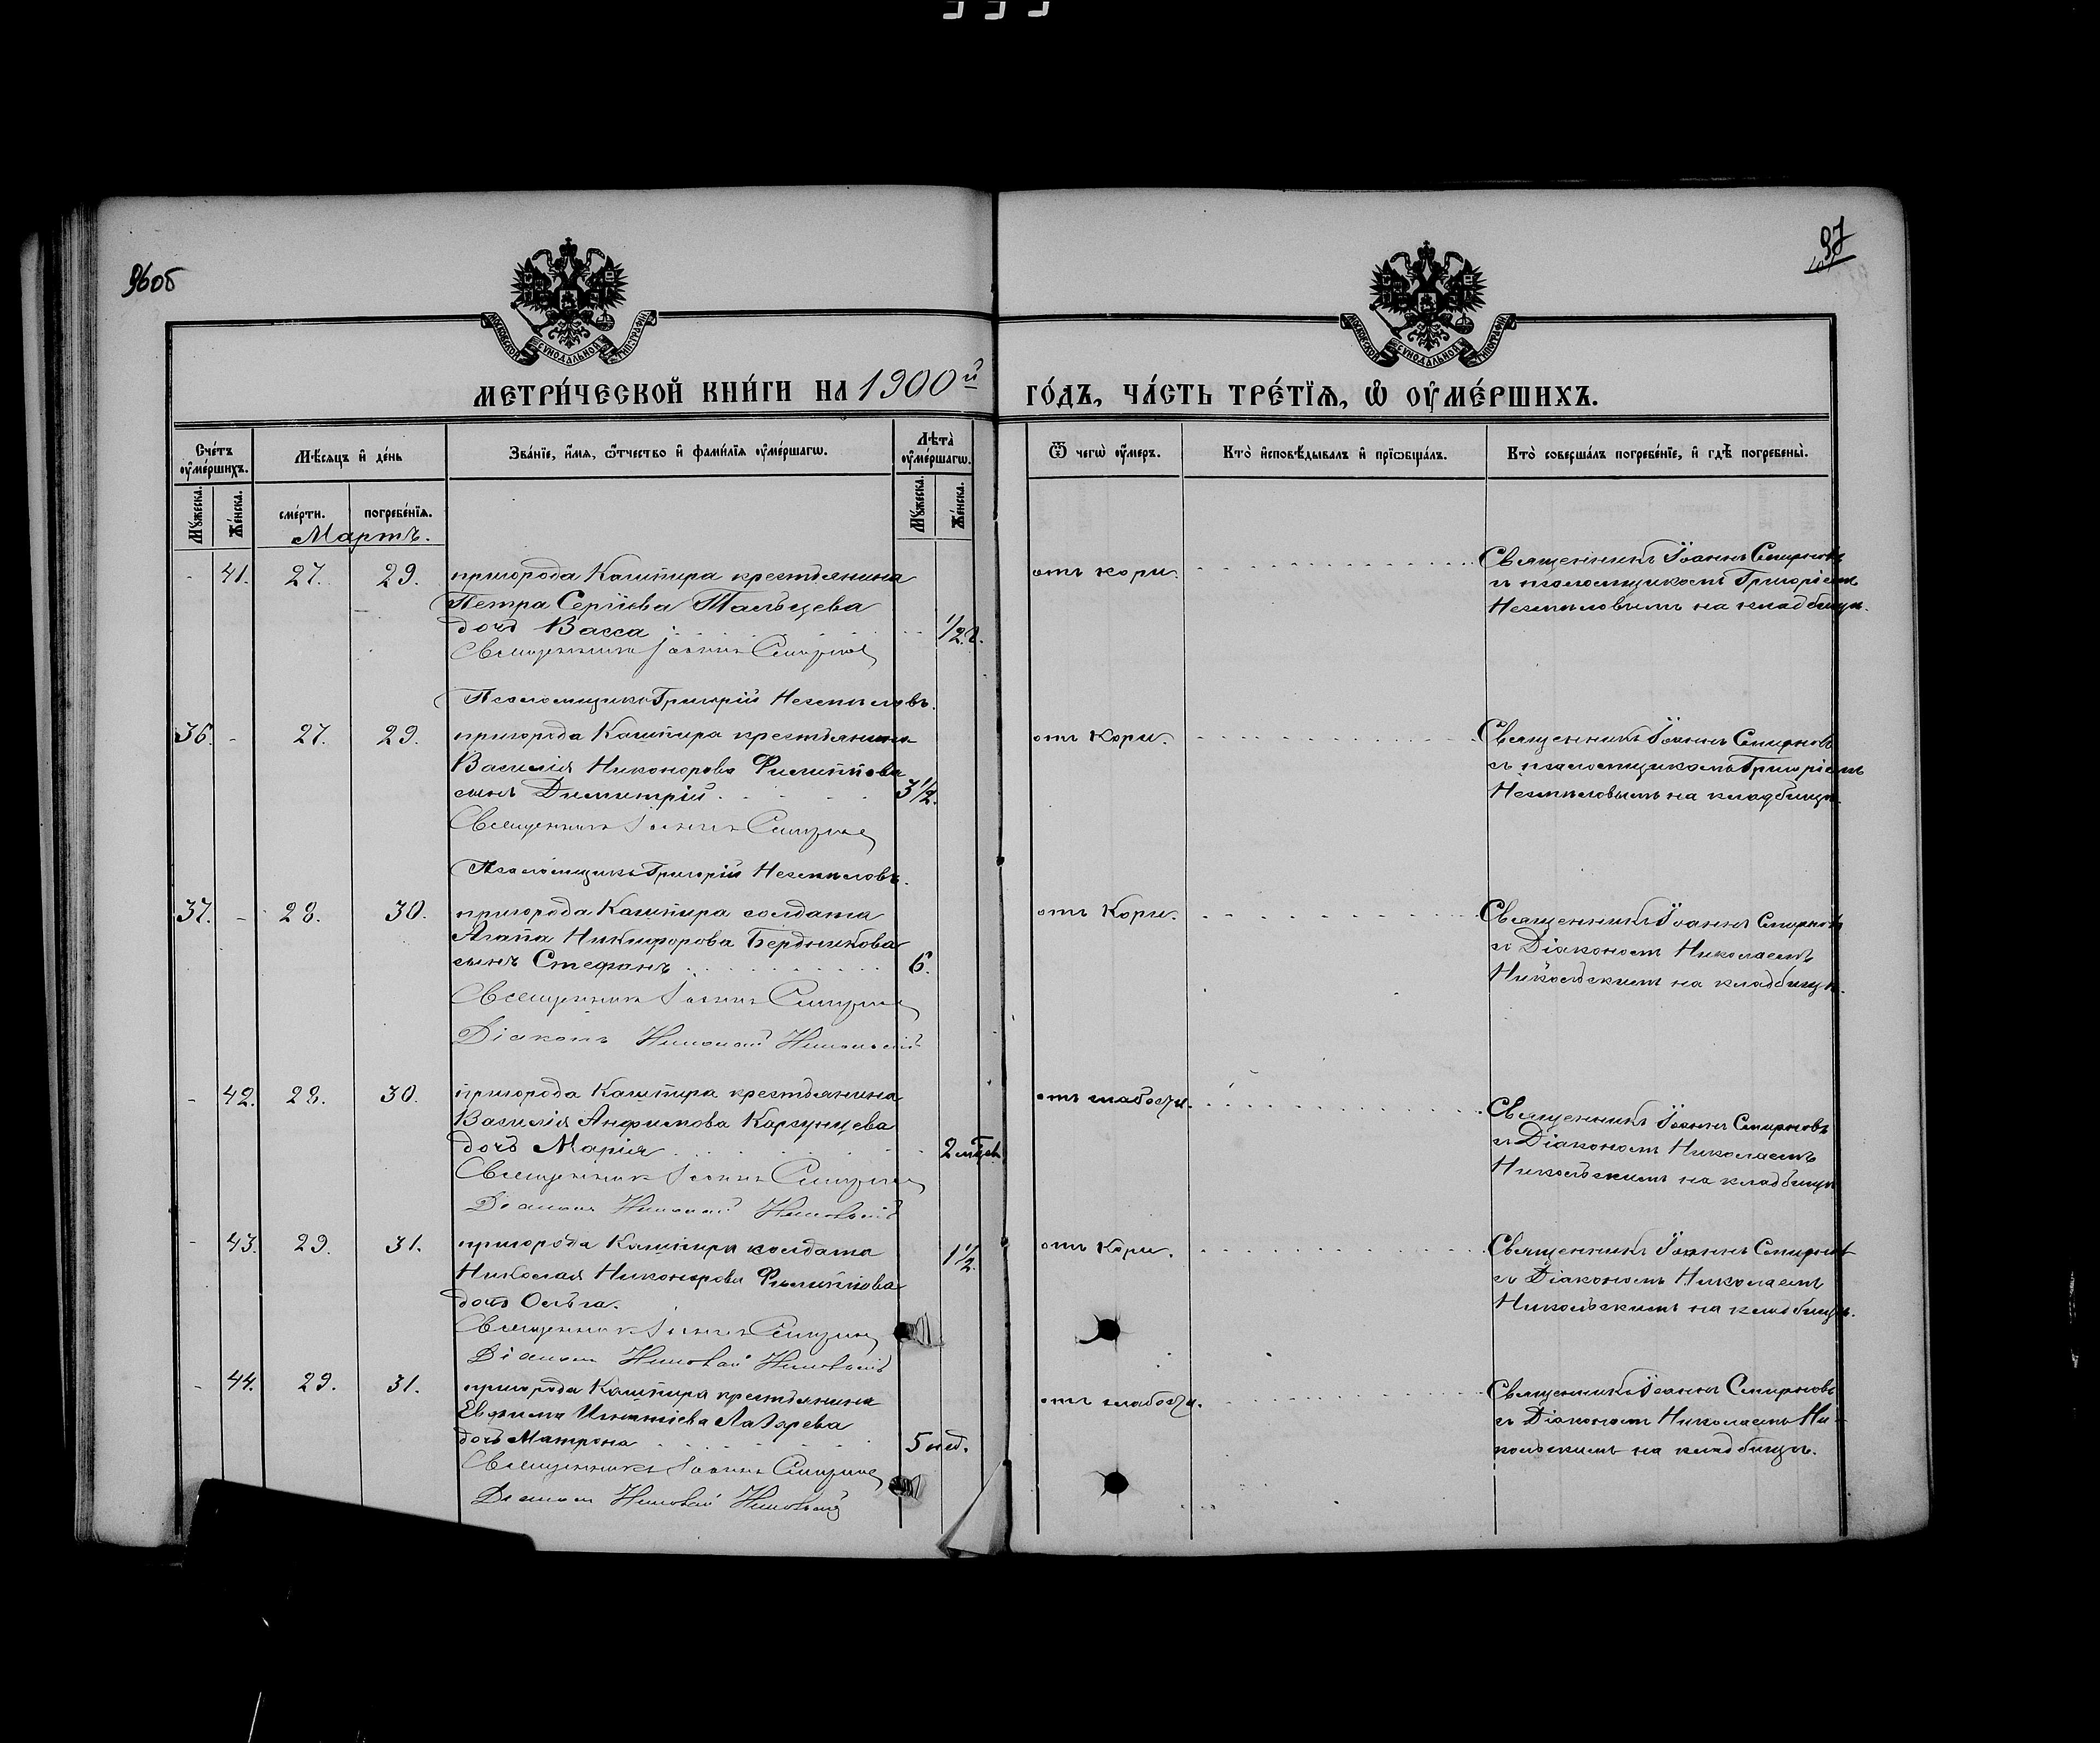 96об
97
МОСКОВСКОЙ СѴНОДАЛЬНОЙ ТИПОГРАФІИ
МОСКОВСКОЙ СѴНОДАЛЬНОЙ ТИПОГРАФІИ
МЕТРИ́ЧЕСКОЙ КНИ́ГИ НА 1900й ГО́ДЪ, ЧА́СТЬ ТРЕ́ТЇѦ, Ѡ҆ ОУ҆МЕ́РШИХЪ.
Сче́тъ оу҆ме́ршихъ.
Мѣ́сѧцъ и҆ де́нь
Зва́нїе, и҆́мѧ, ѻ҆́тчество и҆ фами́лїѧ оу҆ме́ршагѡ.
Лѣ́та оу҆ме́ршагѡ.
Ѿ чегѡ̀ оу҆́меръ.
Кто̀ и҆сповѣ́дывалъ и҆ прїѡбща́лъ.
Кто̀ соверша́лъ погребе́нїе, и҆ гдѣ̀ погребены̀.
Мꙋ́жеска.
Же́нска.
сме́рти.
погребе́нїѧ.
Мꙋ́жеска.
Же́нска.
Мартъ.
- 41. 27. 29. пригорода Кашпира крестьянина
Петра Сергіева Мальцева
дочь Васса 1/2 г.
Священникъ Іоаннъ Смирнов
Псаломщикъ Григорій Незмѣловъ.
отъ кори.
Священникъ Іоаннъ Смирновъ
съ псаломщикомъ Григоріемъ
Незмѣловымъ на кладбищѣ.
36. - 27. 29. пригорода Кашпира крестьянина
Василія Никонорова Филиппова
сынъ Димитрій 3 1/2.
Священникъ Іоаннъ Смирнов
Псаломщикъ Григорій Незмѣловъ.
отъ Кори.
Священникъ Іоаннъ Смирновъ
съ псаломщикомъ Григоріемъ
Незмѣловымъ на кладбищѣ.
37. - 28. 30. пригорода Кашпира солдата
Агапа Никифорова Бердникова
сынъ Стефанъ 6.
Священникъ Іоаннъ Смирнов
Діаконъ Николай Никольскій
отъ Кори.
Священникъ Іоаннъ Смирновъ
съ Діакономъ Николаемъ
Никольскимъ на кладбищѣ.
- 42. 28. 30. пригорода Кашпира крестьянина
Василія Анфимова
дочь Марія 2 мѣс.
Священникъ Іоаннъ Смирнов
Діаконъ Николай Никольскій
отъ слабости.
Священникъ Іоаннъ Смирновъ
съ Діакономъ Николаемъ
Никольскимъ на кладбищѣ
- 43. 29. 31. пригорода Кашпира солдата 1 1/2.
Николая Никонорова Филиппова
дочь Ольга.
Священникъ Іоаннъ Смирнов
Діаконъ Николай Никольскій
отъ Кори.
Священникъ Іоаннъ Смирновъ
съ Діакономъ Николаемъ
Никольскимъ на кладбищѣ.
- 44. 29. 31. пригорода Кашпира крестьянина
Евфима Игнатіева Лазарева
дочь Матрона 5 нед.
Священникъ Іоаннъ Смирнов
Діаконъ Николай Никольскій
отъ слабости.
Священникъ Іоаннъ Смирновъ
съ Діакономъ Николаемъ Ни-
кольскимъ на кладбищѣ.